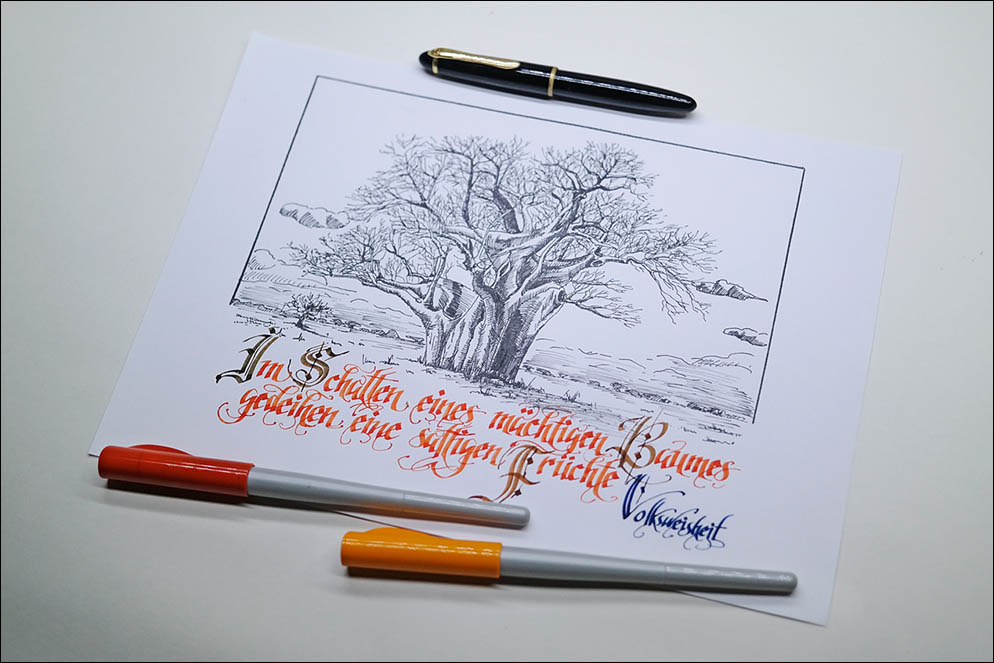 Im Schatten eines mächtigen Baumes
gedeihen eine saftigen Früchte
Volksweisheit